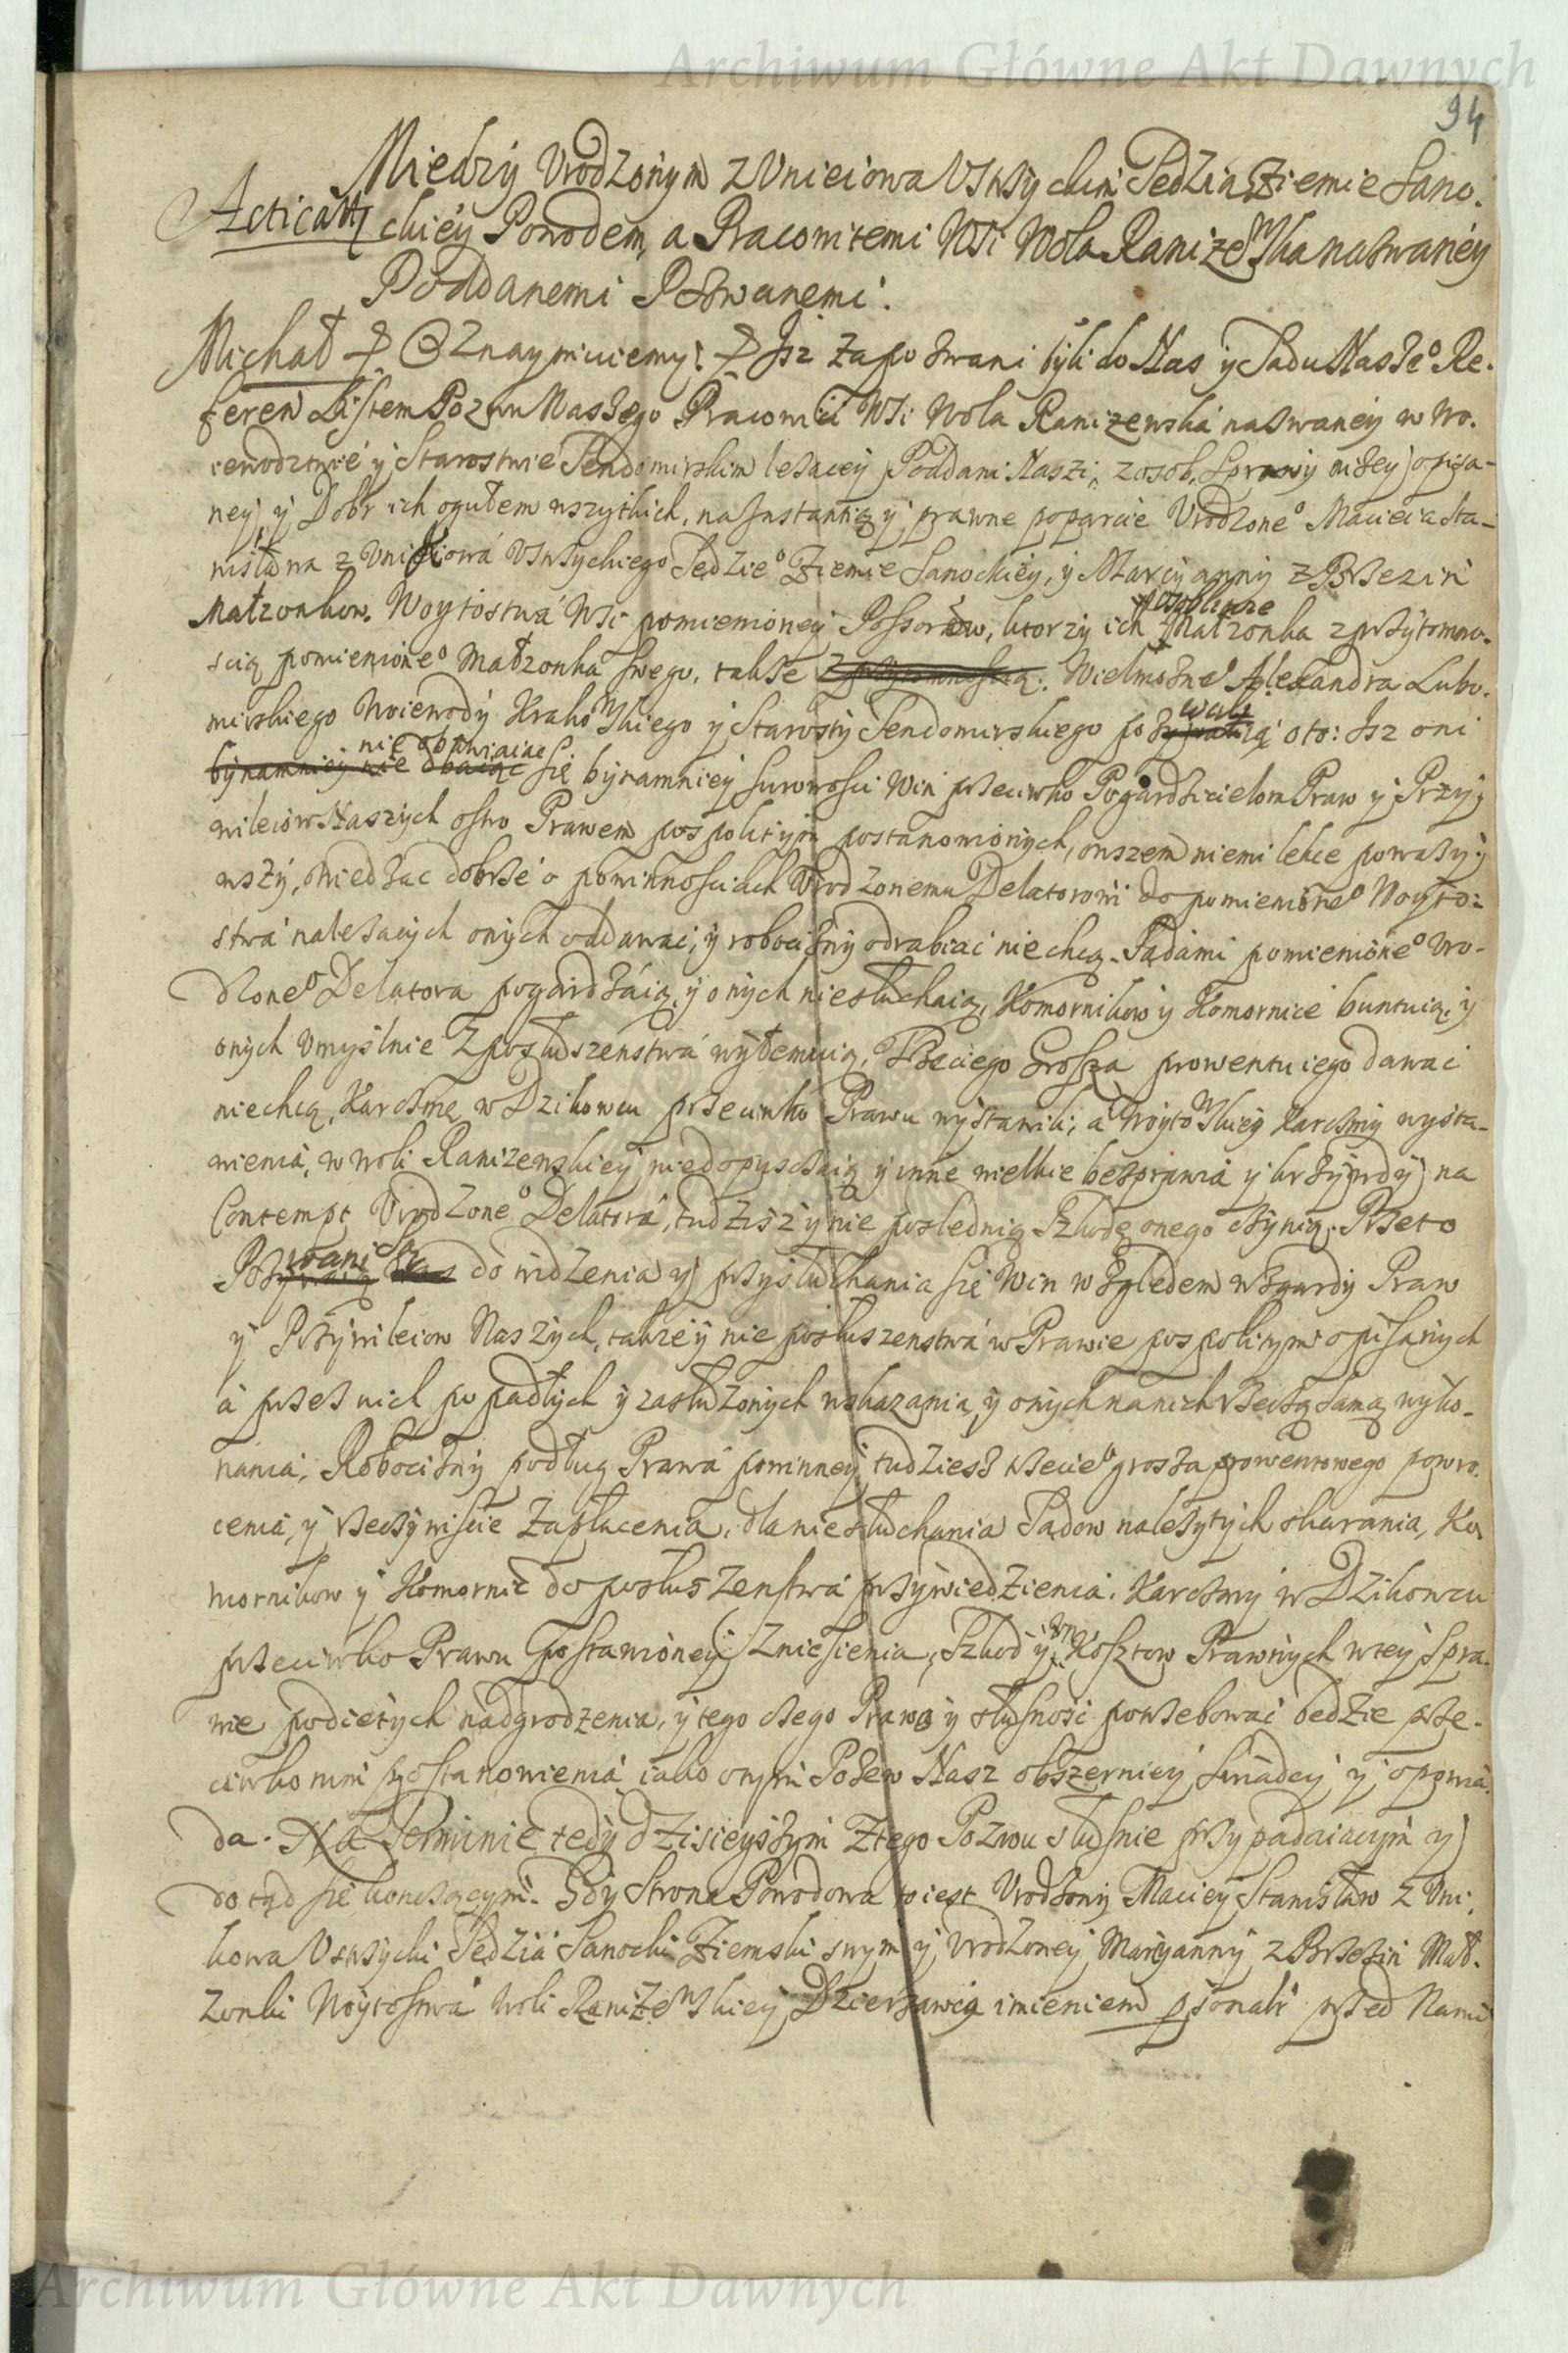 Archiwum Główne Akt Dawnych
94
Miedzy Vrodzonym z Vnieiowa Vstrzyckim Sędzią Ziemie Sano-
Acticat
ckiey Powodem, a Pracowitemi Wsi Wola Raniżewska nazwaney
Poddanemi Pozwanemi.
Michał Oznaymuiemy: Isz zapozwani byli do Nas y Sądu Naszeo Re-
feren Listem Pozwu Naszego Pracowici Wsi Wola Raniżewska nazwaney w Wo-
iewodztwie y Starostwie Sendomirskim leżącey Poddani Naszi, z osob, Sprawy niżey opisa-
ney, y Dobr ich ogułem wszytkich, na Instantią y prawne poparcie Vrodzoneo Macieia Sta-
nisława z Vnikowa Vstrzyckiego Sędzieo Ziemie Sanockiey, y Maryanny z Brzezin
Małżonkow. Woytostwa Wsi pomienioney Possorow, ktorzy ich Małżonka z przytomno-
scią pomienioneo Małżonka swego, także z przytomnością. Wielmożneo Alexandra Lubo-
mirskiego Woiewody Krakowskiego y Starosty Sendomirskiego pozwali o to: Isz oni
nie obawiaiąc
bynamniey nie dbaiąc się bynamniey surowosci Win przeciwko Pogardzicielom Praw y Przy-
wileiow Naszych ostro Prawem pospolitym postanowionych, owszem niemi lekce poważy-
wszy, wiedząc dobrze o powinnosciach Vrodzonemu Delatorowi do pomienioneo Woyto-
stwa należących onych oddawać, y robocizny odrabiać nie chcą. Sądami pomienioneo Vro-
dzoneo Delatora pogardzaią, y onych niesłuchaią, Komornikow y Komornice buntuią, y
onych vmyslnie z posłuszenstwa wyłemuią, Trzeciego Grosza prowentu iego dawać
niechcą, Karczmę w Dzikowcu przeciwko Prawu wystawili, a Woytowskiey Karczmy wysta-
wienia, w Woli Raniżewskiey niedopuszczaią y inne wielkie bezprawia y krzywdy na
Contempt Vrodzoneo Delatora, tudzisz y nie poslednią Szkodę onego czynią. Przeto
Pozwani są do widzenia y przysłuchania się Win względem wzgardy Praw
y Przywileiow Naszych, także y nie posłuszenstwa w Prawie pospolitym opisanych
a przez nich popadłych y zasłużonych wskazania, y onych na nich rzeczą samą wyko-
nania, Robocizny podług Prawa powinney tudziesz trzecieo grosza prowentowego powro-
cenia, y rzeczywiscie zapłacenia, dla niesłuchania Sądow należytych skarania, Ko-
mornikow y Komornic do posłuszenstwa przywiedzienia. Karczmy w Dzikowcu
przeciwko Prawu postawioney zniesienia, Szkod y Kosztow Prawnych w tey Spra-
wie podietych nadgrodzenia, y tego czego Prawo y słusność potrzebować bedzie prze-
ciwko nim postanowienia iako o tym Pozew Nasz obszerniey swiadczy y opowia-
da. Na Terminie tedy dzisieyszym z tego Pozwu słusnie przypadaiącym y
dotąd się kończącym. Gdy Strona Powodowa to iest Vrodzony Maciey Stanisław z Vni-
kowa Vstrzycki Sędzia Sanocki Ziemski swym y Vrodzoney Maryanny z Brzezin Małż-
żonki Woytostwa Woli Raniżewskiey Dzierżawcą imieniem psonalr przed Nami
Archiwum Główne Akt Dawnych